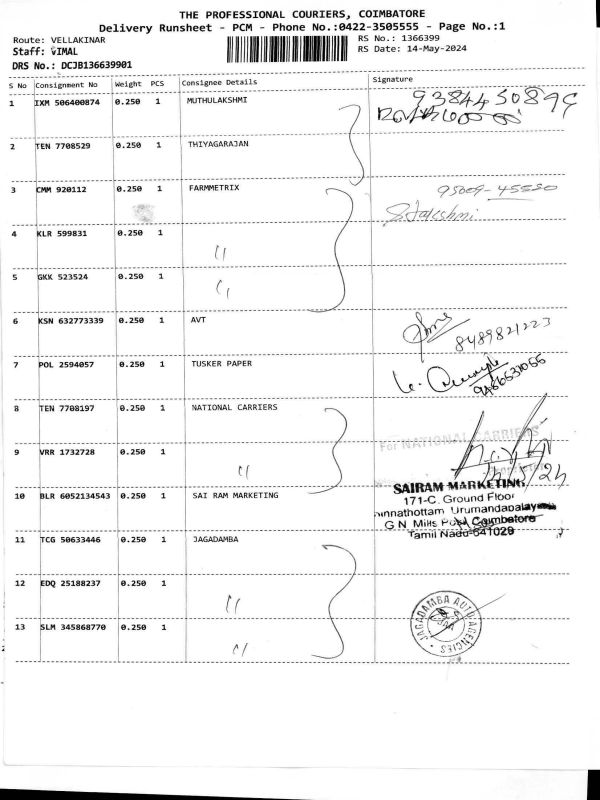 THE PROFESSIONAL COURIERS, COIMBATORE
Delivery Runsheet - PCM - Phone No.:0422-3505555 - Page No.:1
Route: VELLAKINAR
RS No.: 1366399
Staff: VIMAL
RS Date: 14-May-2024
DRS No.: DCJB136639901
S No Consignment No Weight PCS Consignee Details Signature
1 IXM 506400874 0.250 1 MUTHULAKSHMI
2 TEN 7708529 0.250 1 THIYAGARAJAN
3 CMM 920112 0.250 1 FARMMETRIX
95009-45520
4 KLR 599831 0.250 1
5 GKK 523524 0.250 1
6 KSN 632773339 0.250 1 AVT
8489821223
7 POL 2594057 0.250 1 TUSKER PAPER
8 TEN 7708197 0.250 1 NATIONAL CARRIERS
For NATIONAL CARRIERS
9 VRR 1732728 0.250 1
SAIRAM MARKETING
10 BLR 6052134543 0.250 1 SAI RAM MARKETING
171-C, Ground Floor
G N Mills Post Coimbatore
Tamil Nadu-641029
11 TCG 50633446 0.250 1 JAGADAMBA
12 EDQ 25188237 0.250 1
JAGADAMBA AUTO AGENCIES
13 SLM 345868770 0.250 1